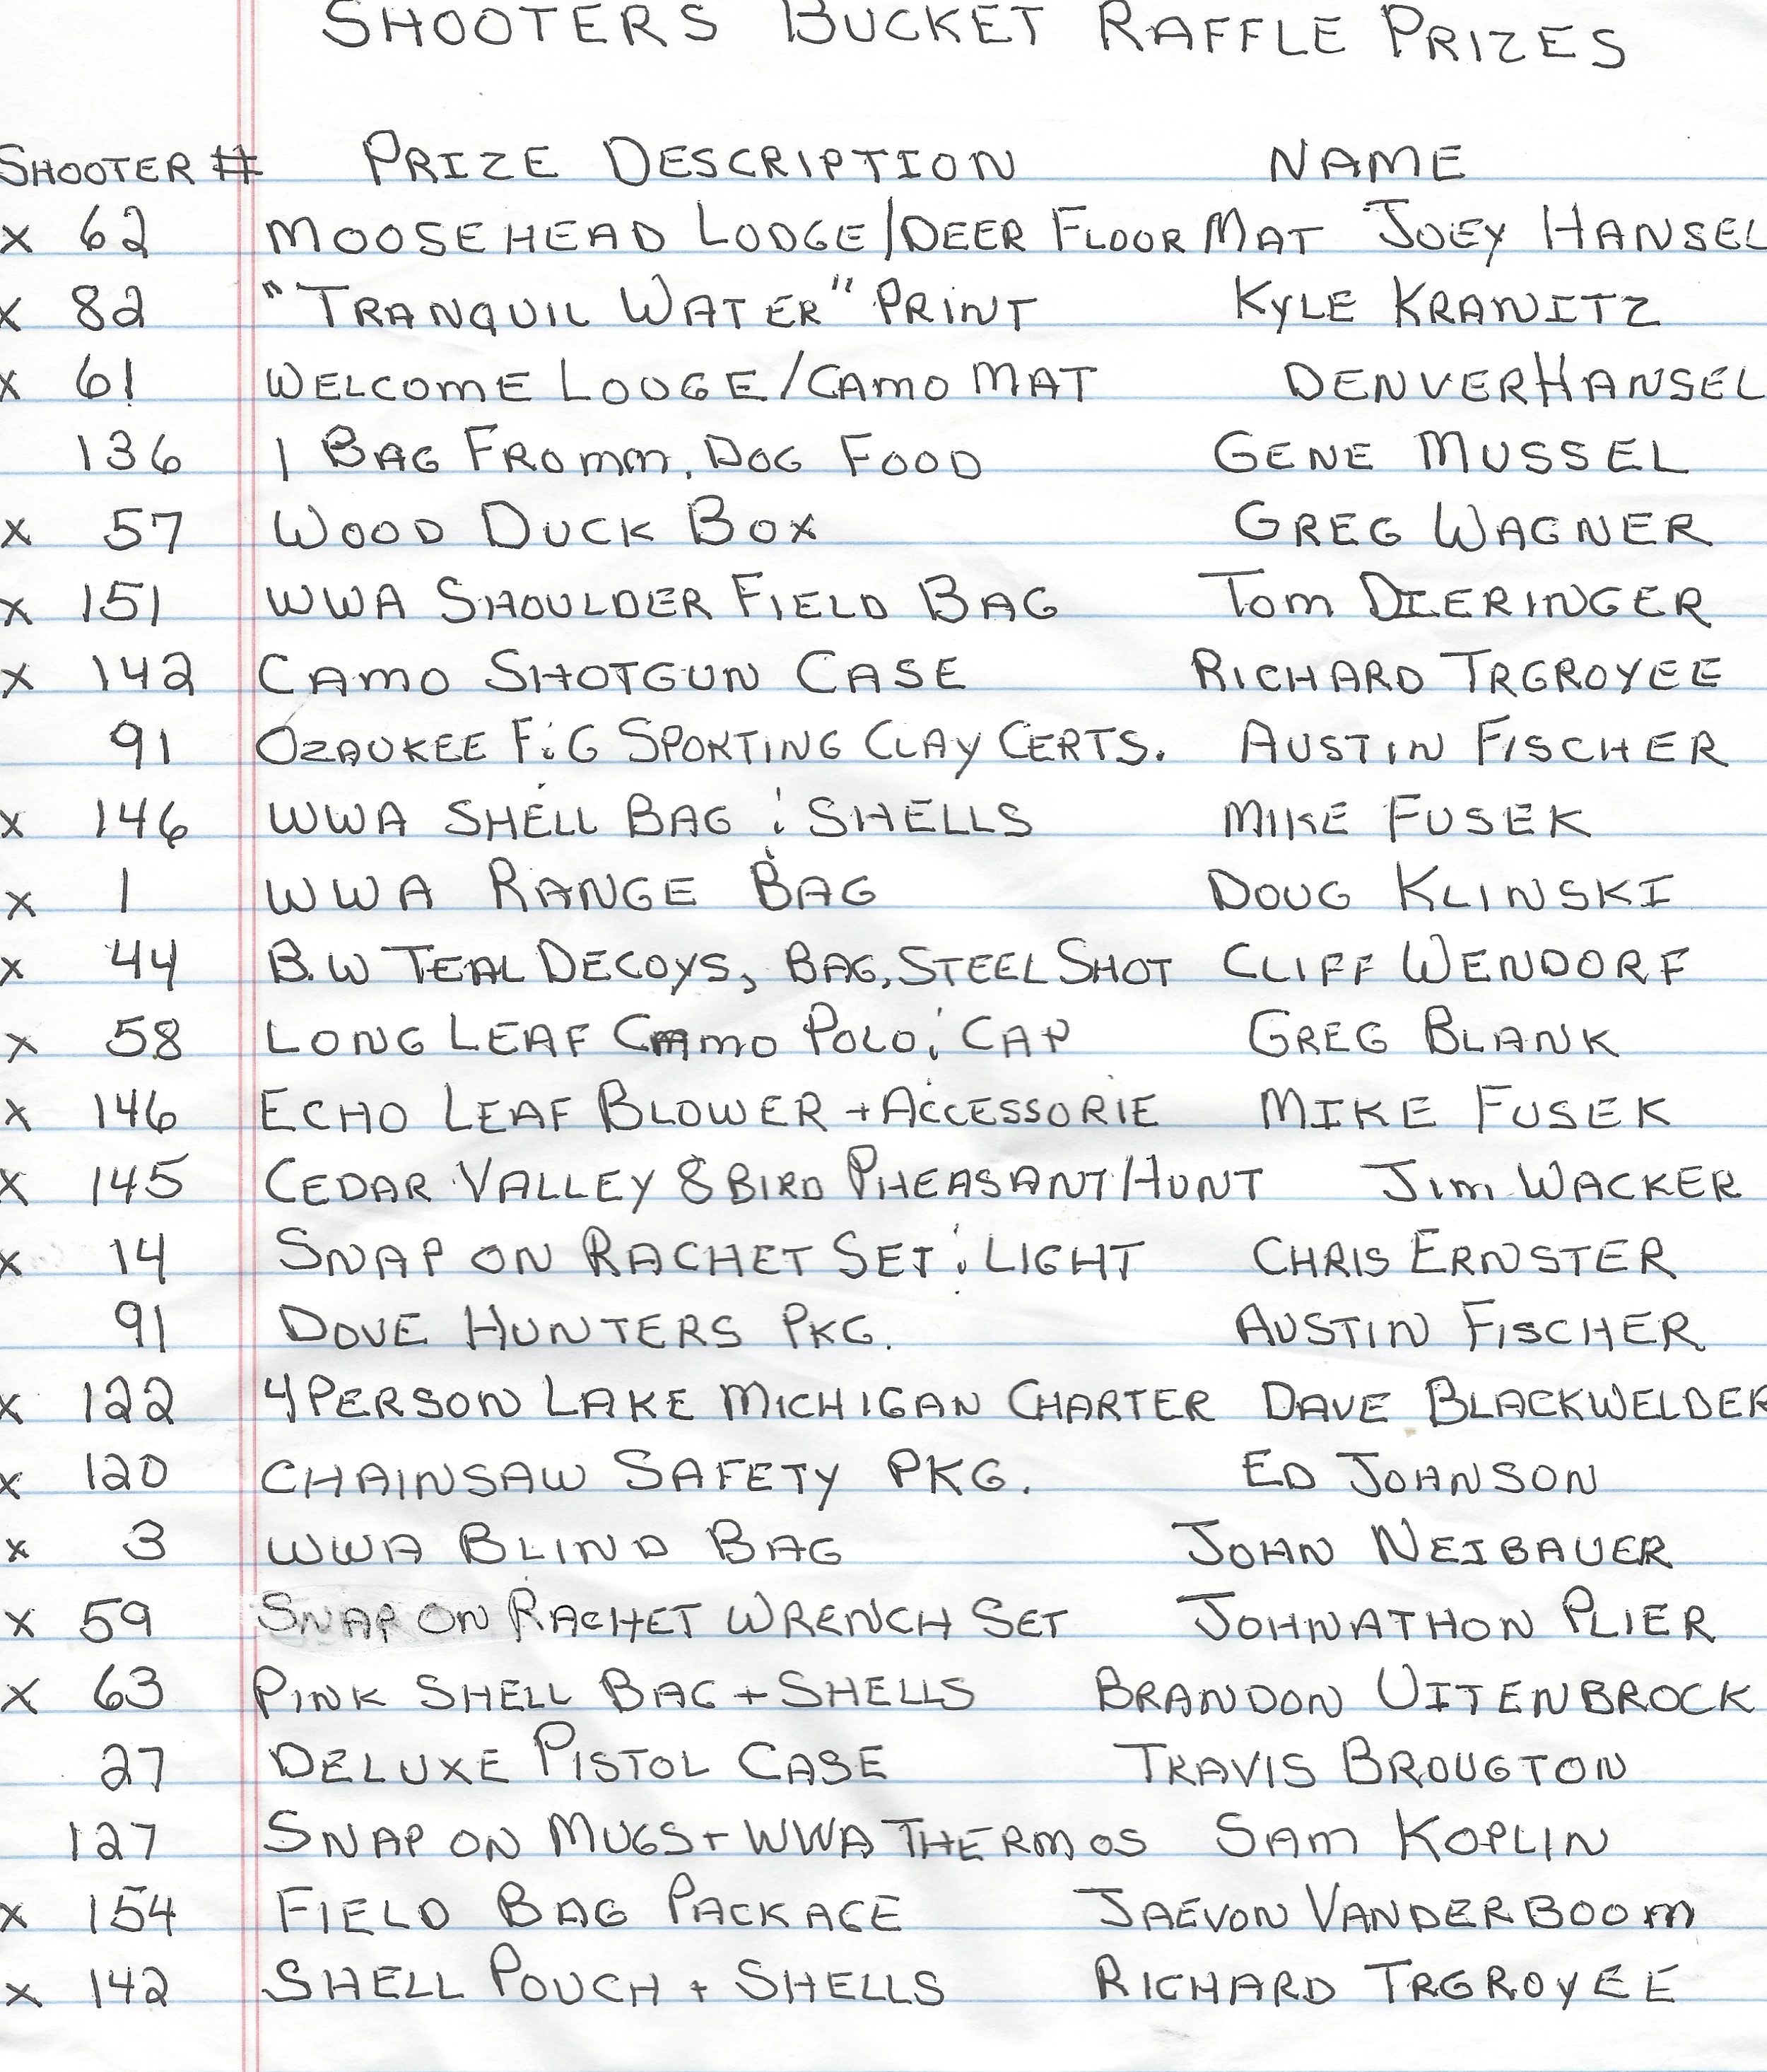 SHOOTERS BUCKET RAFFLE PRIZES
SHOOTER # PRIZE DESCRIPTION NAME
X 62 MOOSEHEAD LODGE/DEER FLOOR MAT JOEY HANSEL
X 82 "TRANQUIL WATER" PRINT KYLE KRANITZ
X 61 WELCOME LODGE/CAMO MAT DENVER HANSEL
136 1 BAG FROMM, DOG FOOD GENE MUSSEL
X 57 WOOD DUCK BOX GREG WAGNER
X 151 WWA SHOULDER FIELD BAG TOM DIERINGER
X 142 CAMO SHOTGUN CASE RICHARD TRGROYEE
91 OZAUKEE F & G SPORTING CLAY CERTS. AUSTIN FISCHER
X 146 WWA SHELL BAG & SHELLS MIKE FUSEK
X 1 WWA RANGE BAG DOUG KLINSKI
X 44 B.W TEAL DECOYS, BAG, STEEL SHOT CLIFF WENDORF
X 58 LONG LEAF CAMO POLO & CAP GREG BLANK
X 146 ECHO LEAF BLOWER + ACCESSORIE MIKE FUSEK
X 145 CEDAR VALLEY 8 BIRD PHEASANT HUNT JIM WACKER
X 14 SNAP ON RACHET SET & LIGHT CHRIS ERNSTER
91 DOVE HUNTERS PKG. AUSTIN FISCHER
X 122 4 PERSON LAKE MICHIGAN CHARTER DAVE BLACKWELDER
X 120 CHAINSAW SAFETY PKG. ED JOHNSON
X 3 WWA BLIND BAG JOHN NEIBAUER
X 59 SNAP ON RACHET WRENCH SET JOHNATHON PLIER
X 63 PINK SHELL BAG + SHELLS BRANDON UITENBROCK
27 DELUXE PISTOL CASE TRAVIS BROUGTON
127 SNAP ON MUGS + WWA THERMOS SAM KOPLIN
X 154 FIELD BAG PACKAGE JAEVON VANDERBOOM
X 142 SHELL POUCH + SHELLS RICHARD TRGROYEE